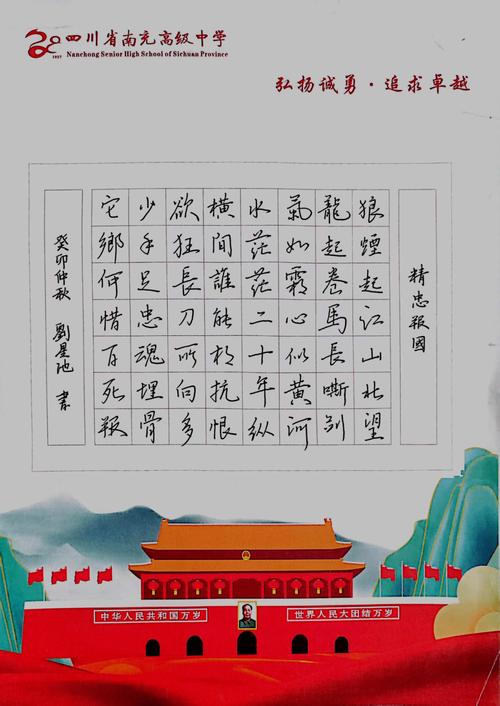 四川省南充高级中学
Nanchong Senior High School of Sichuan Province
1927
弘扬诚勇·追求卓越
精忠報國
狼煙起江山北望
龍起卷馬長嘶剑
氣如霜心似黄河
水茫茫二十年縱
横間誰能相抗恨
欲狂長刀所向多
少手足忠魂埋骨
它鄉何惜百死報
癸卯仲秋 劉星池 書
中华人民共和国万岁
世界人民大团结万岁